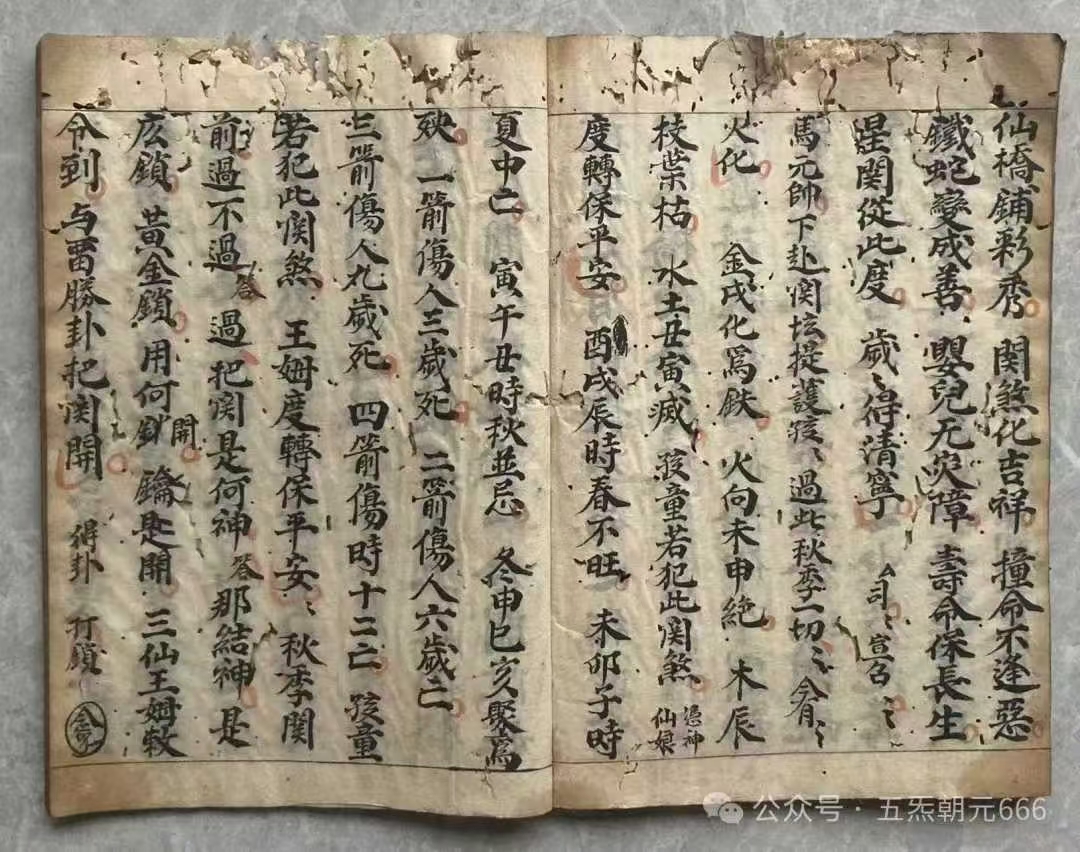 仙橋鋪彩秀 関煞化吉祥 撞命不逢惡
鐵蛇變成善 嬰兒无災障 壽命保長生
涅関從此度 歲〻得清寧 厶司〻宣召〻〻
馬元帅下赴関坛提護孩〻過此秋季一切〻今有〻
火化 金戌化為鉄 火向未申絶 木辰
枝葉枯 水土丑寅滅 孩童若犯此関煞 憑神仙娘
度轉保平安 酉戌辰時春不旺 未卯子時
夏中亡 寅午丑時秋並忌 冬申巳亥聚為
殃 一箭傷人三歲死 二箭傷人六歲亡
三箭傷人九歲死 四箭傷時十二亡 孩童
若犯此関煞 王姆度轉保平安〻 秋季関
前過不過 答 過 把関是何神 答 那結神 是
広鎖 黄金鎖 用何 開 鑰匙開 三仙王姆敕
令到 与雷勝卦把関開 得卦 打鎖
公众号 · 五炁朝元666